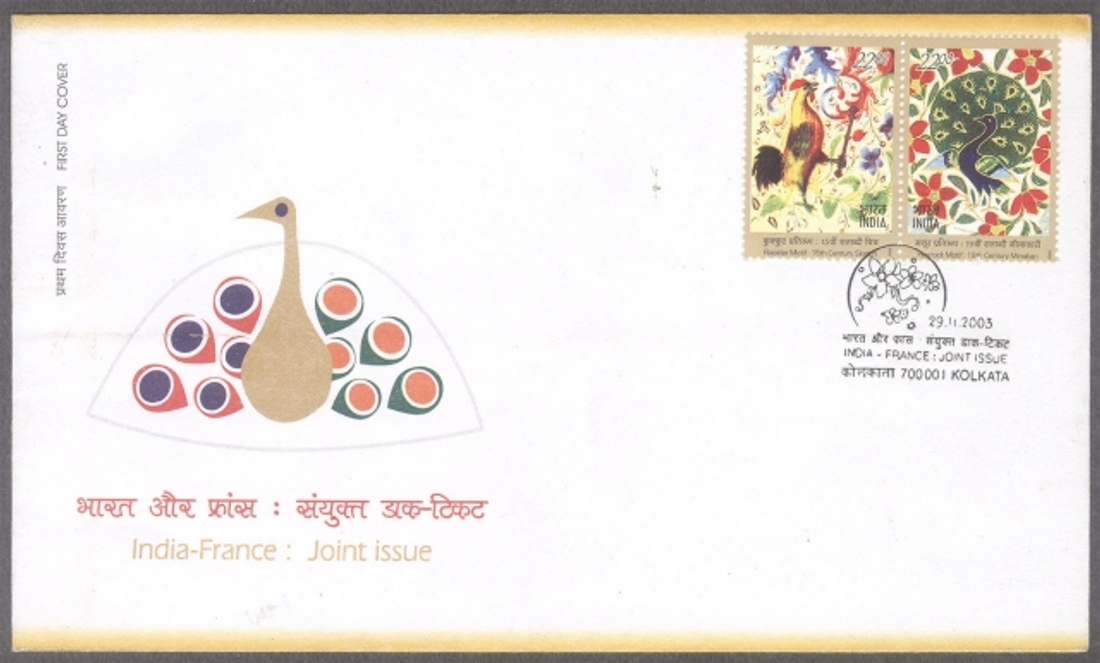 प्रथम दिवस आवरण FIRST DAY COVER
2200
2200
भारत
INDIA
भारत
INDIA
कुक्कुट प्रतिरूप : 15वीं शताब्दी चित्र
Rooster Motif : 15th Century
मयूर प्रतिरूप : 19वीं शताब्दी मीनाकारी
Peacock Motif : 19th Century Minakari
29.11.2003
भारत और फ्रांस : संयुक्त डाक-टिकट
INDIA - FRANCE : JOINT ISSUE
कोलकाता 700001 KOLKATA
भारत और फ्रांस : संयुक्त डाक-टिकट
India-France : Joint issue